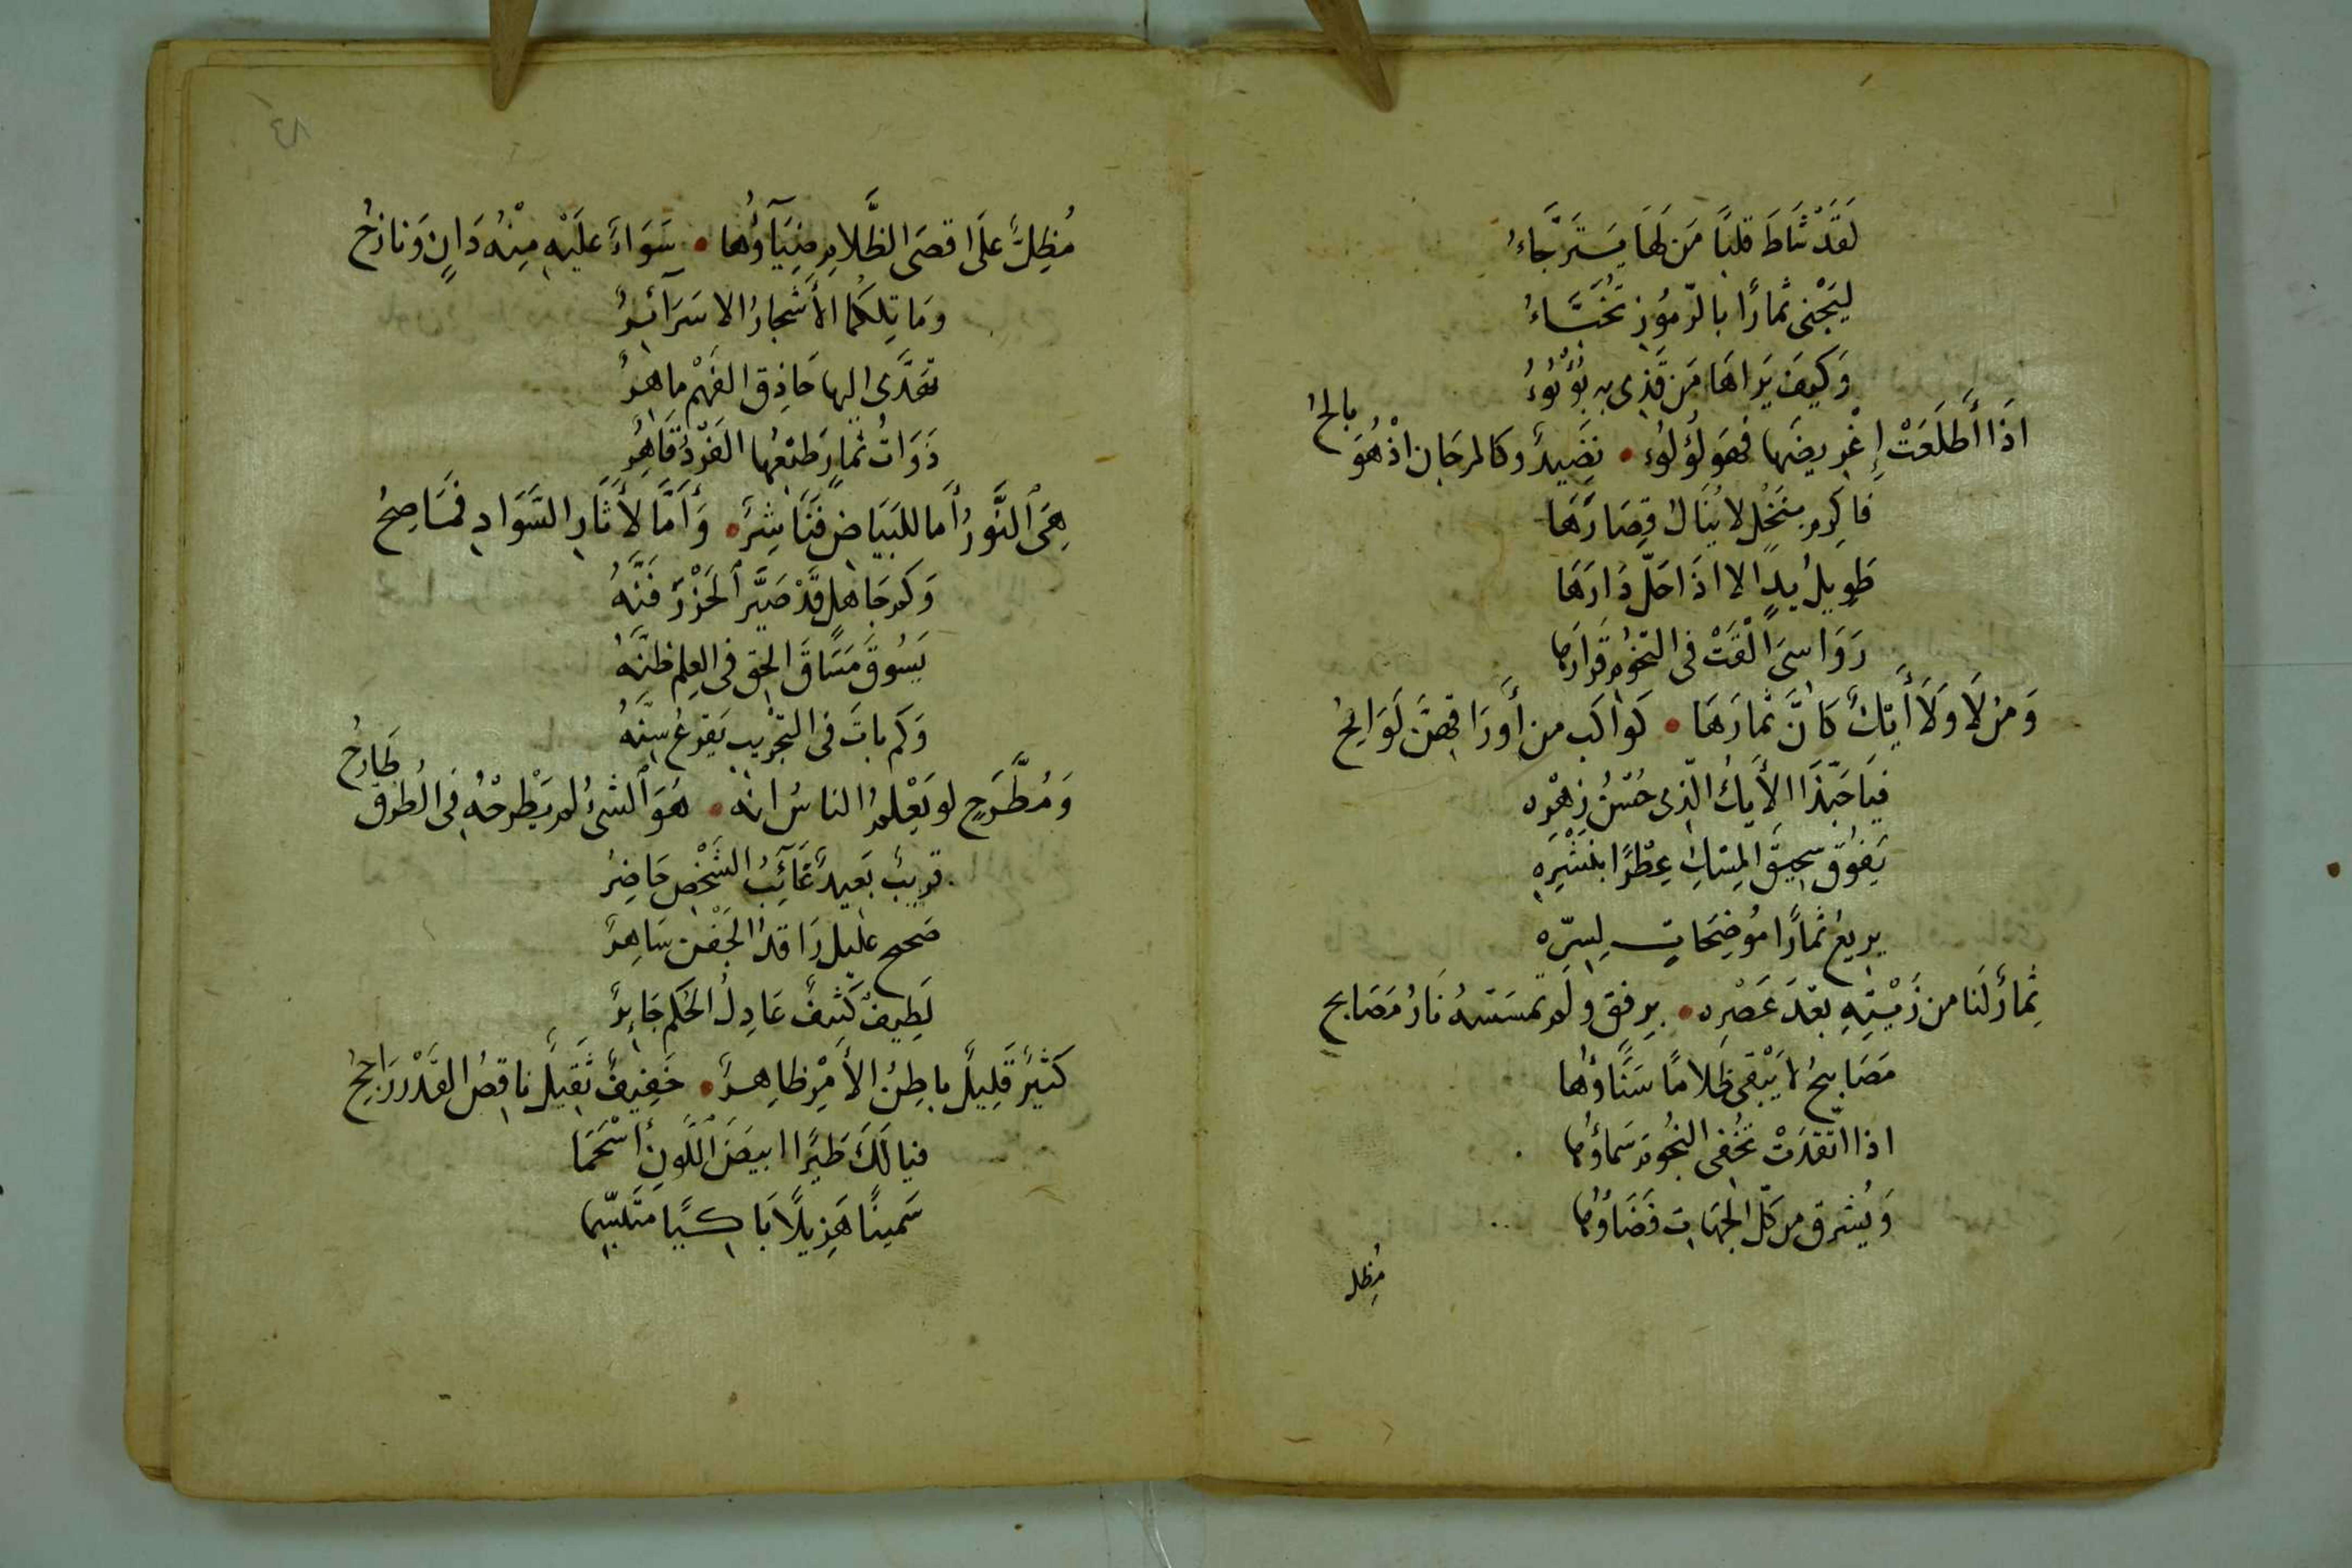 لَقَدْ شَاطَ قلبًا مَن لَهَا يَسْتَرجَّاءُ
ليَجْنى ثمارًا بالرّموُز تُخَبَّاءُ
وَكيفَ يَراهَا مَن قَذِى به بُؤْبُوءُ
اذَا أَطلَعَتْ إِغْريضَها فَهوَ لُؤلوُء • نَضَيدٌ وكالمرجَان اذْ هُوَ بالحُ
فاكرم بنَخْلٍ لا يُنَالُ قِصَارُهَا
طَويلُ يدٍ الا اذَا حَلّ دَارَهَا
رَوَاسىَ ألْقَتْ فى التخُوُم قرَارَها
وَمِنْ لَا وَلَا أَيْكٌ كانَّ ثمارَهَا • كوَاكب من أَورَاقهنَّ لَوَايحُ
فيَا حَبّذَا الأَيكُ الّذى حُسْنُ زهْره
يَفوُق سحيقَ المِسْكِ عِطْرًا بنَشْرِه
يريعُ ثمارًا مُوضِحَاتٍ لِسِرّه
ثِمارٌ لَنا من زَيْتِهِ بعْدَ عَصْرِه • برِفقٍ ولَم تمسَسْهُ نَارُ مَصَابح
مَصَابيحُ لا يَبْقى ظلامًا سَنَاؤُها
اذا اتّقدَتْ تُخْفى النجُومَ سَماؤُها
وَيُشرق من كلّ الجهَاتِ فَضَاؤُها
مُظِل
مُظِلٌّ علَى اقصَى الظَّلامِ ضِيَآؤُها • سَوَاءٌ علَيْهِ مِنْهُ دَانٍ وَنازحُ
وَمَا تِلكمُا الأَشْجارُ الا سَرَآئرُ
تَهَدَّى اليها حَاذِق الفَهْم ماهرُ
ذَوَاتُ ثمارٍ طَبْعُها الفَرْدُ قَاهِرُ
هِىَ النَّورُ أمَا للبَيَاضِ فَنَاشِرٌ • وَأمَّا لأَثَارِ السَّوَادِ فمَاصِحُ
وَكم جَاهلٍ قَدْ صَيَّرَ الحَزْرَ فَنَّهُ
يَسُوقَ مَسَاقَ الحَقِ فى العِلم ظَنَّهُ
وَكَم باتَ فى التجْريب يَقرعُ سِنَّهُ
وَمُطَّرَحٍ لو يَعْلمُ الناسُ انهُ • هُوَ الشىءُ لم يَطْرحْهُ فى الطُرق طارحُ
قريبٌ بَعيدٌ غَآئِبُ الشَّخْص حَاضِرُ
صَحيح عليل رَاقدُ الجَفْن سَاهِرٌ
لَطِيفٌ كَثِيفٌ عَادِلُ الحُكم جَايرٌ
كَثيرٌ قَلِيلٌ باطِنُ الأمْرِ ظاهِرٌ • خَفيفٌ ثَقيلٌ ناقصُ القَدْر رَاجحُ
فيا لَكَ طَيْرًا ابيَضَ اللَّونِ أسْحَمَا
سَمينًا هَزِيلًا بَاكيًا مُتَبسّما